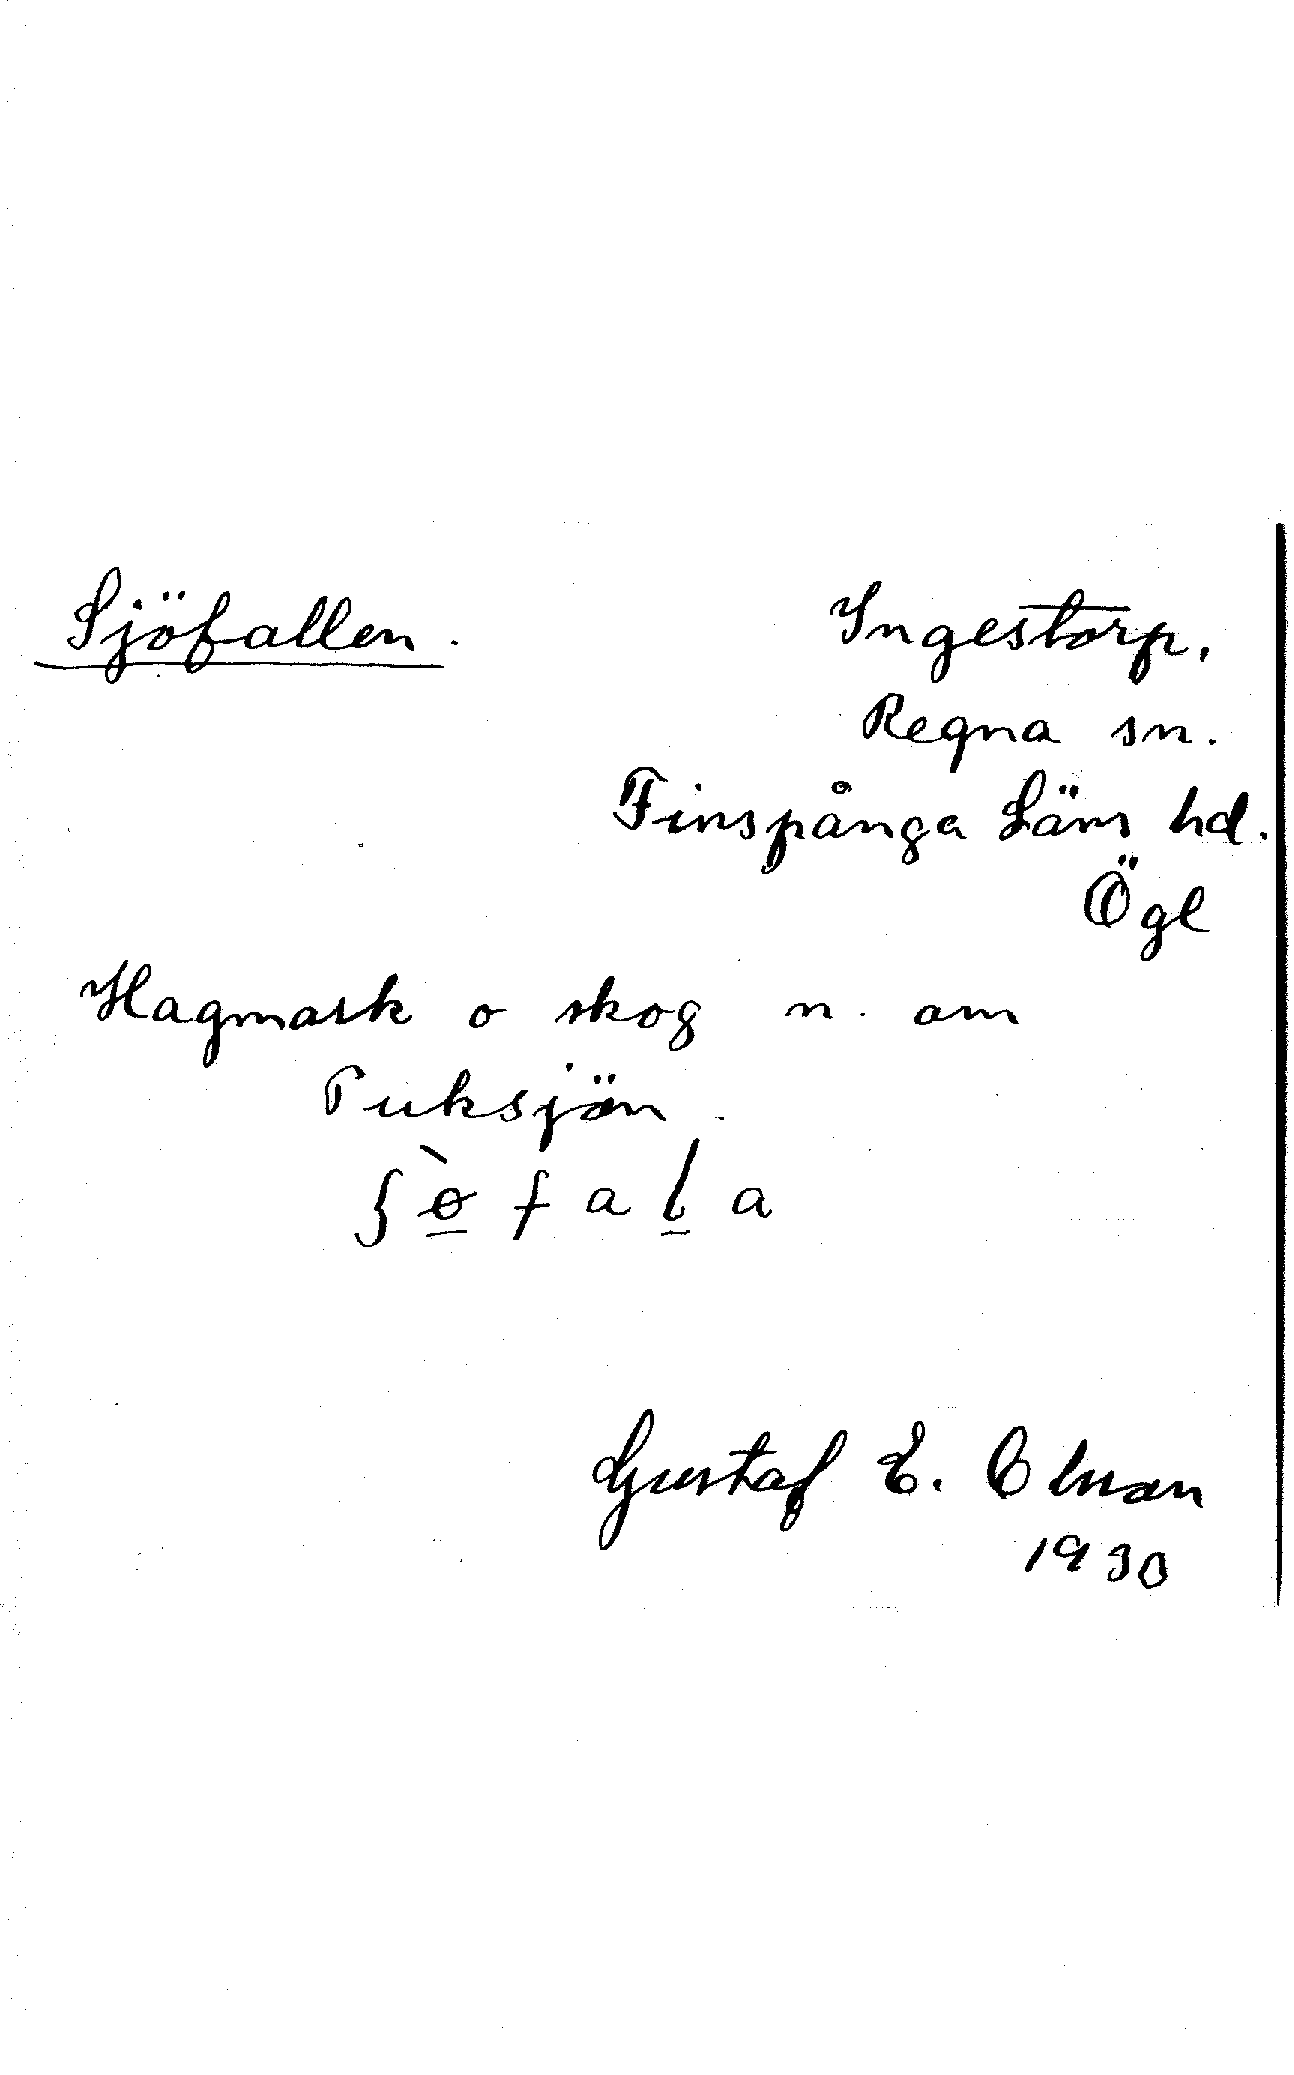 Sjöfallen.
Ingestorp,
Regna sn.
Finspånga Läns hd.
Ögl
Hagmark o skog n. om
Puksjön.
Gustaf E.
1930